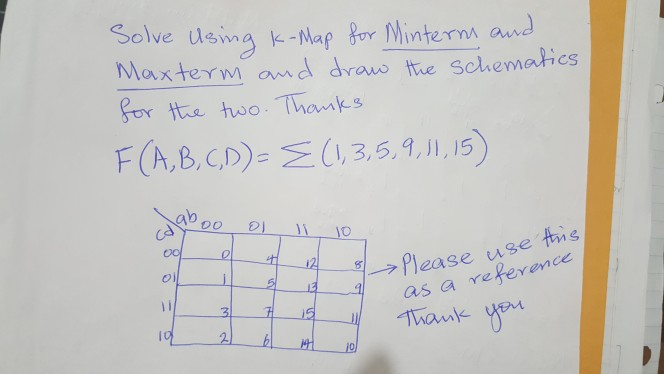 Solve Using K-Map for Minterm and
Maxterm and draw the Schematics
for the two. Thanks
F(A,B,C,D)= Σ(1,3,5,9,11,15)
ab 00 01 11 10
cd
00 0 4 12 8
01 1 5 13 9
11 3 7 15 11
10 2 6 14 10
→Please use this
as a reference
Thank you